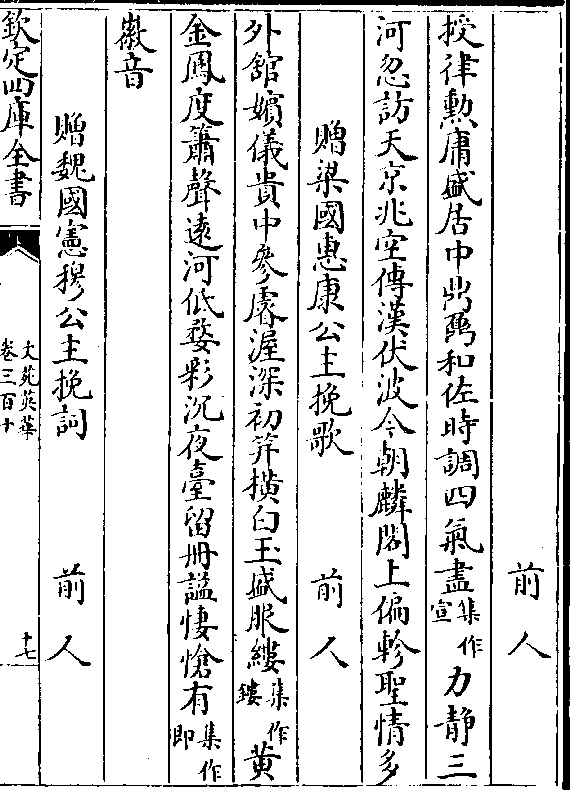 前人
授律勲庸盛居中鼎鼐和佐時調四氣盡集作宣力靜三
河忽訪天京兆空傳漢伏波今朝麟閣上偏軫聖情多
贈梁國惠康公主挽歌　前人
外館嬪儀貴中參睿渥深初笄橫白玉盛服縷集作鏤黄
金鳳度簫聲遠河低婺彩沉夜臺留冊諡悽愴有集作即
徽音
贈魏國憲穆公主挽詞　前人
欽定四庫全書　文苑英華卷三百十　十七